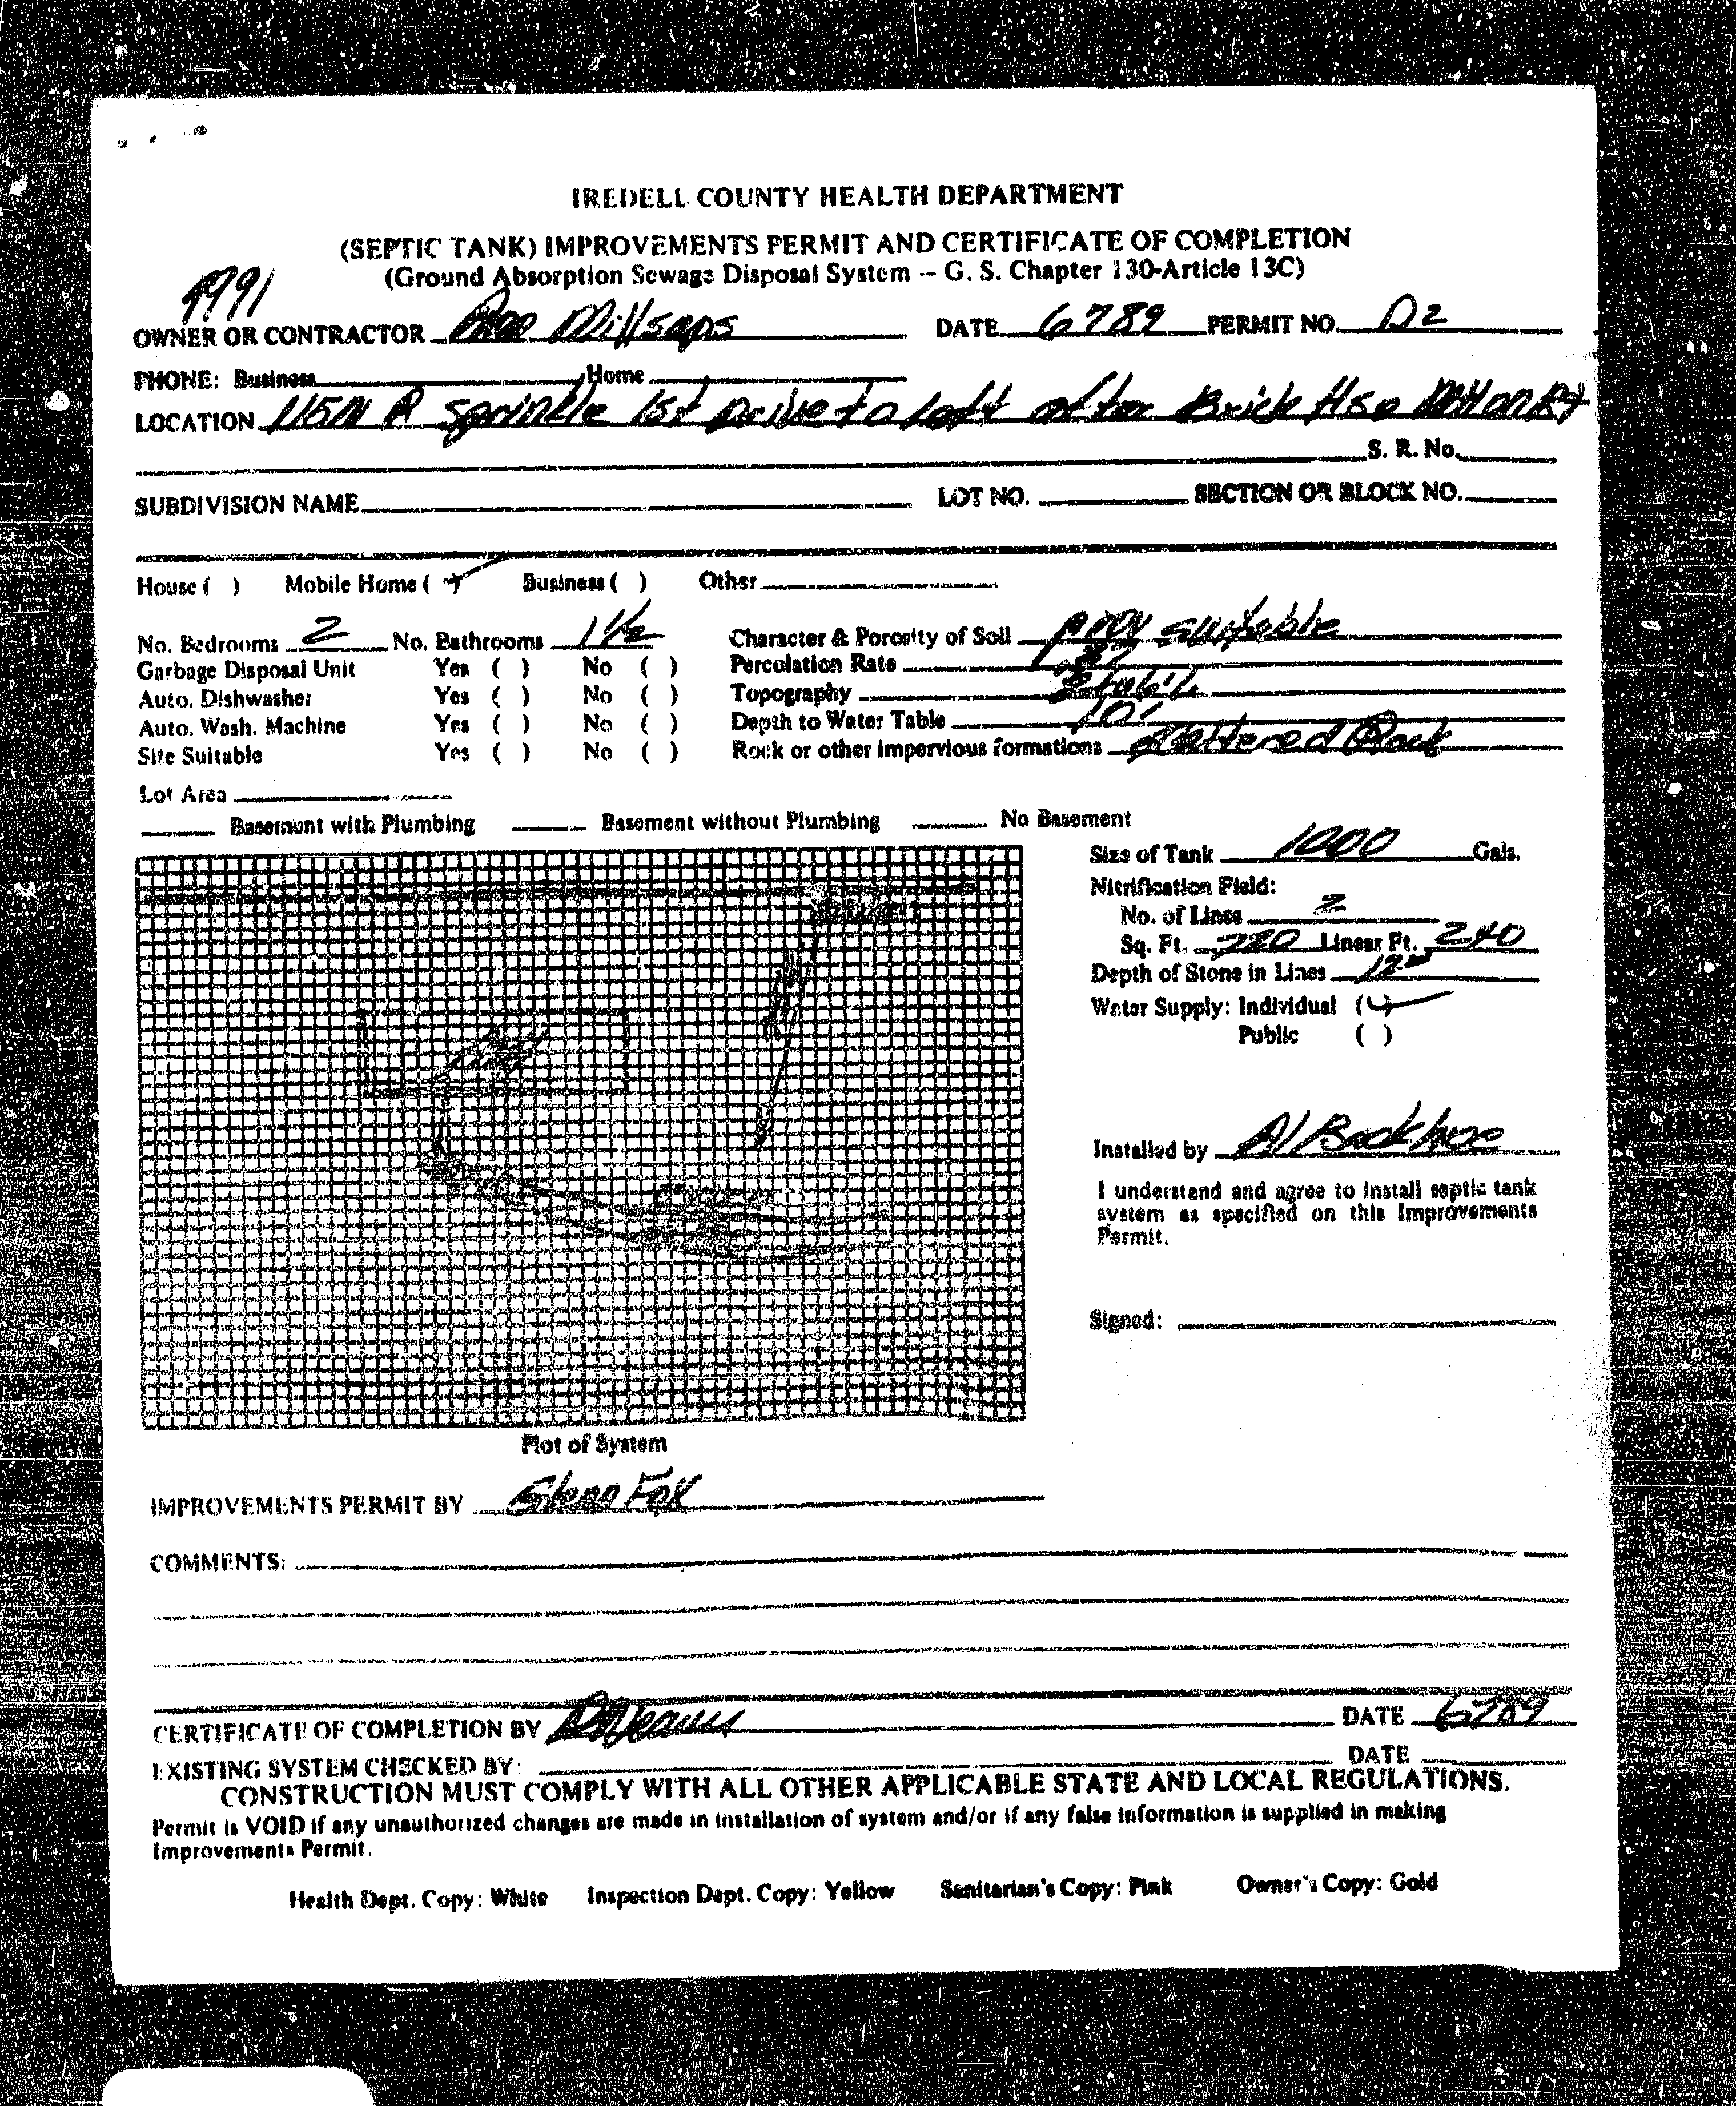 IREDELL COUNTY HEALTH DEPARTMENT
(SEPTIC TANK) IMPROVEMENTS PERMIT AND CERTIFICATE OF COMPLETION
(Ground Absorption Sewage Disposal System -- G. S. Chapter 130-Article 13C)
OWNER OR CONTRACTOR Millsaps DATE 6789 PERMIT NO. D2
PHONE: Business Home
LOCATION 115N R Sprinkle 1st Drive to left after Brick Hse on Rt
S. R. No.
SUBDIVISION NAME LOT NO. SECTION OR BLOCK NO.
House ( ) Mobile Home ( ) Business ( ) Other
No. Bedrooms 2 No. Bathrooms 1 1/2 Character & Porosity of Soil Prov suitable
Garbage Disposal Unit Yes ( ) No ( ) Percolation Rate
Auto. Dishwasher Yes ( ) No ( ) Topography
Auto. Wash. Machine Yes ( ) No ( ) Depth to Water Table 10'
Site Suitable Yes ( ) No ( ) Rock or other impervious formations Rock
Lot Area
Basement with Plumbing Basement without Plumbing No Basement
Size of Tank 1000 Gals.
Nitrification Field:
No. of Lines 2
Sq. Ft. 720 Linear Ft. 240
Depth of Stone in Lines 12"
Water Supply: Individual ( )
Public ( )
Installed by Al Backhoe
I understand and agree to install septic tank
system as specified on this Improvements
Permit.
Signed:
Plot of System
IMPROVEMENTS PERMIT BY Glenn Fox
COMMENTS:
CERTIFICATE OF COMPLETION BY DATE 6789
EXISTING SYSTEM CHECKED BY: DATE
CONSTRUCTION MUST COMPLY WITH ALL OTHER APPLICABLE STATE AND LOCAL REGULATIONS.
Permit is VOID if any unauthorized changes are made in installation of system and/or if any false information is supplied in making
Improvements Permit.
Health Dept. Copy: White Inspection Dept. Copy: Yellow Sanitarian's Copy: Pink Owner's Copy: Gold